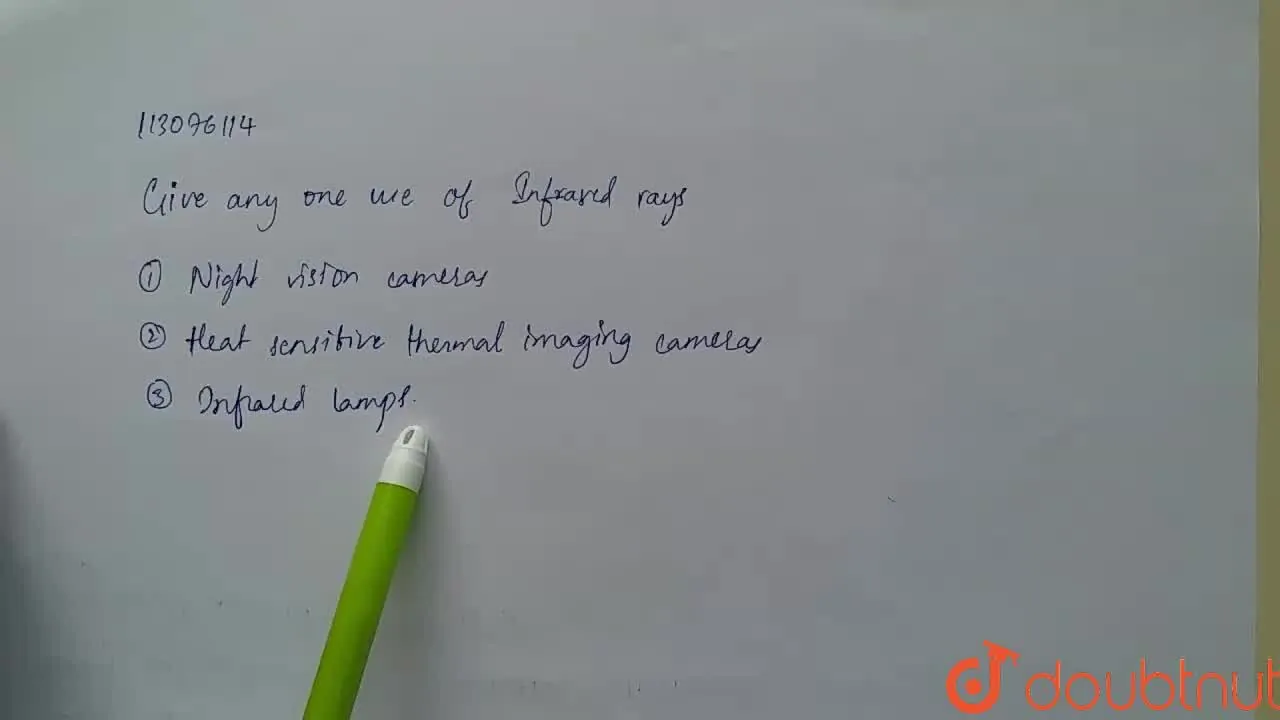 113096114
Give any one use of Infrared rays
① Night vision cameras
② Heat sensitive thermal imaging cameras
③ Infrared lamps.
doubtnut